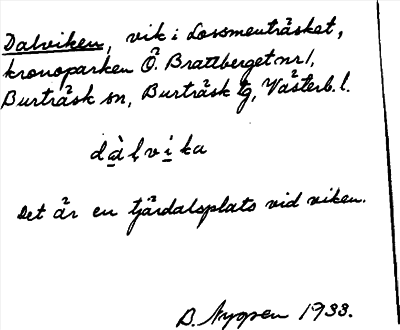 Dalviken, vik i Lossmenträsket,
kronoparken Ö. Brattberget nr 1,
Burträsk sn, Burträsk tg, Västerb. l.
dàlvika
Det är en tjärdalsplats vid viken.
B. Nygren 1933.